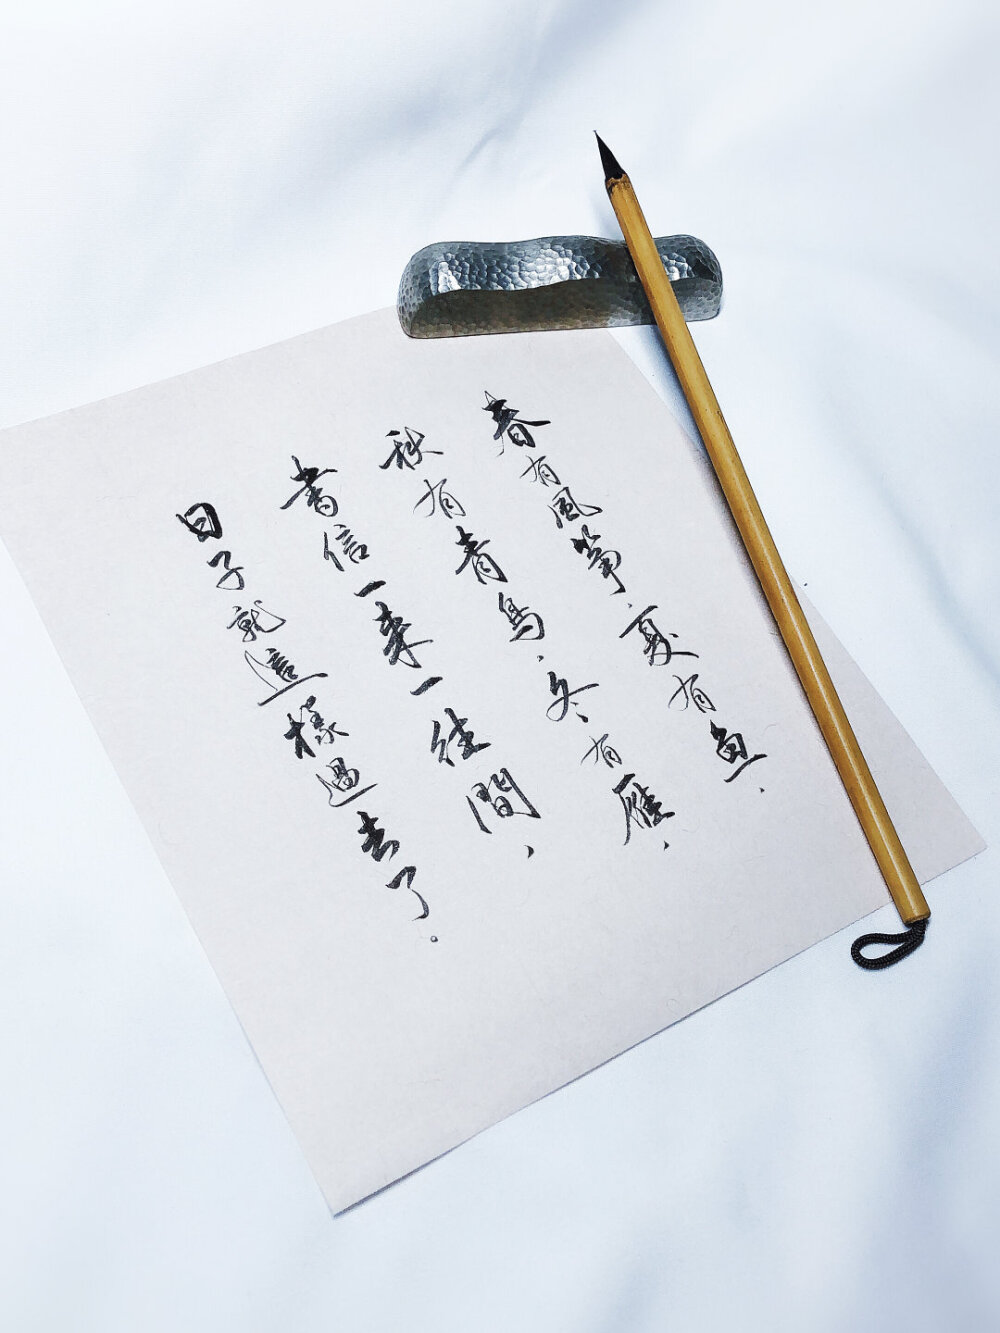 春有風箏、夏有魚、
秋有青鳥、冬有雁、
書信一來一往間、
日子就這樣過去了。